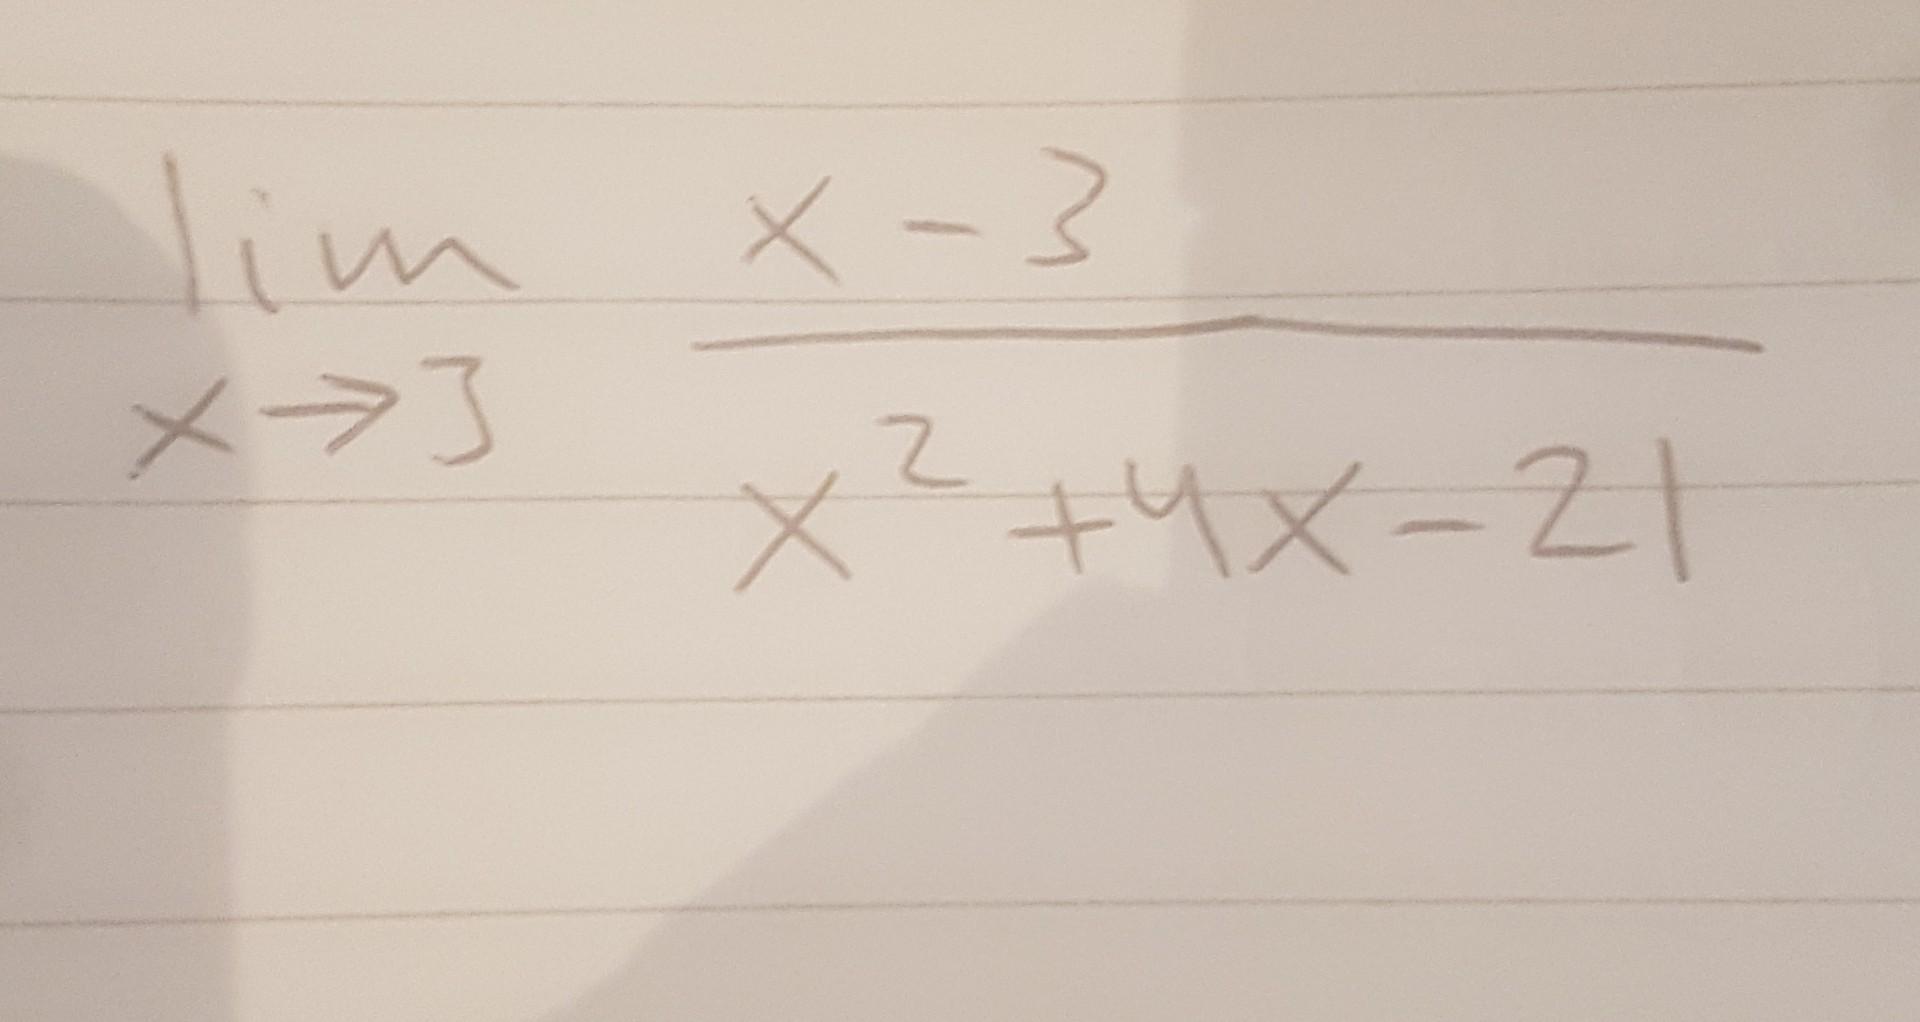 lim x - 3
x→3 x² + 4x - 21